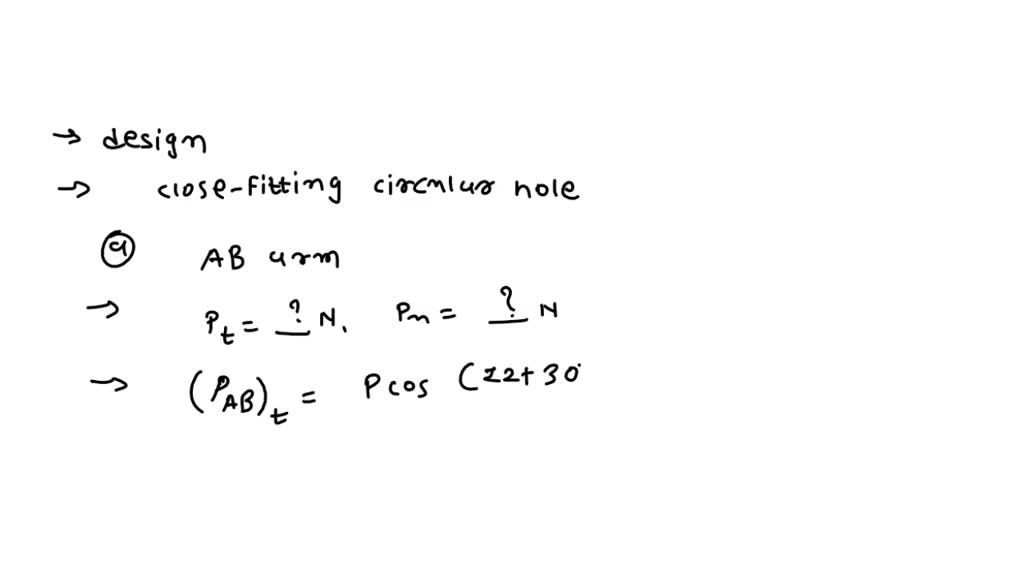 → design
→ close-fitting circular hole
(a) AB arm
→ Pt = ? N, Pn = ? N
→ (PAB)t = P cos (22+30